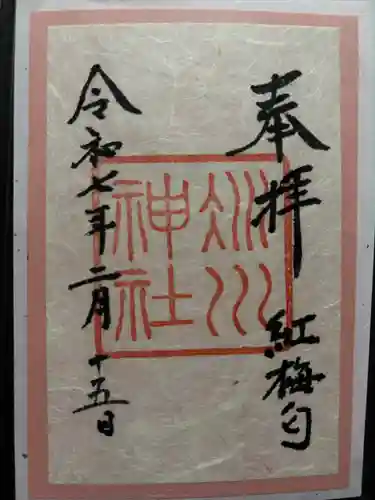 奉拝
紅梅匂
冰川
神社
令和七年二月十五日